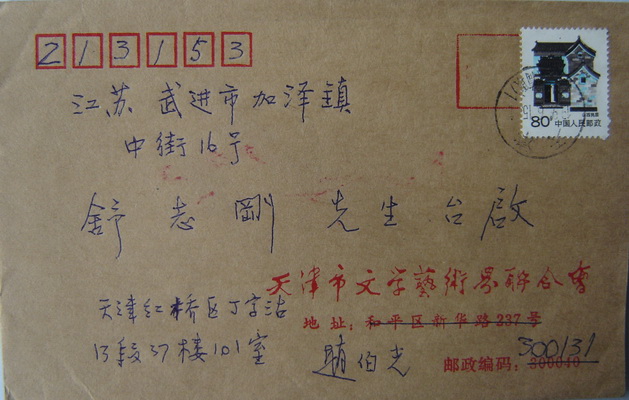 213153
江苏 武进市加泽镇
中街16号
舒志刚 先生台啟
天津市文学藝術界联合會
天津红桥区丁字沽
地址：和平区新华路237号
13段37楼101室
趙伯光
300131
邮政编码：300040
80分 中国人民邮政